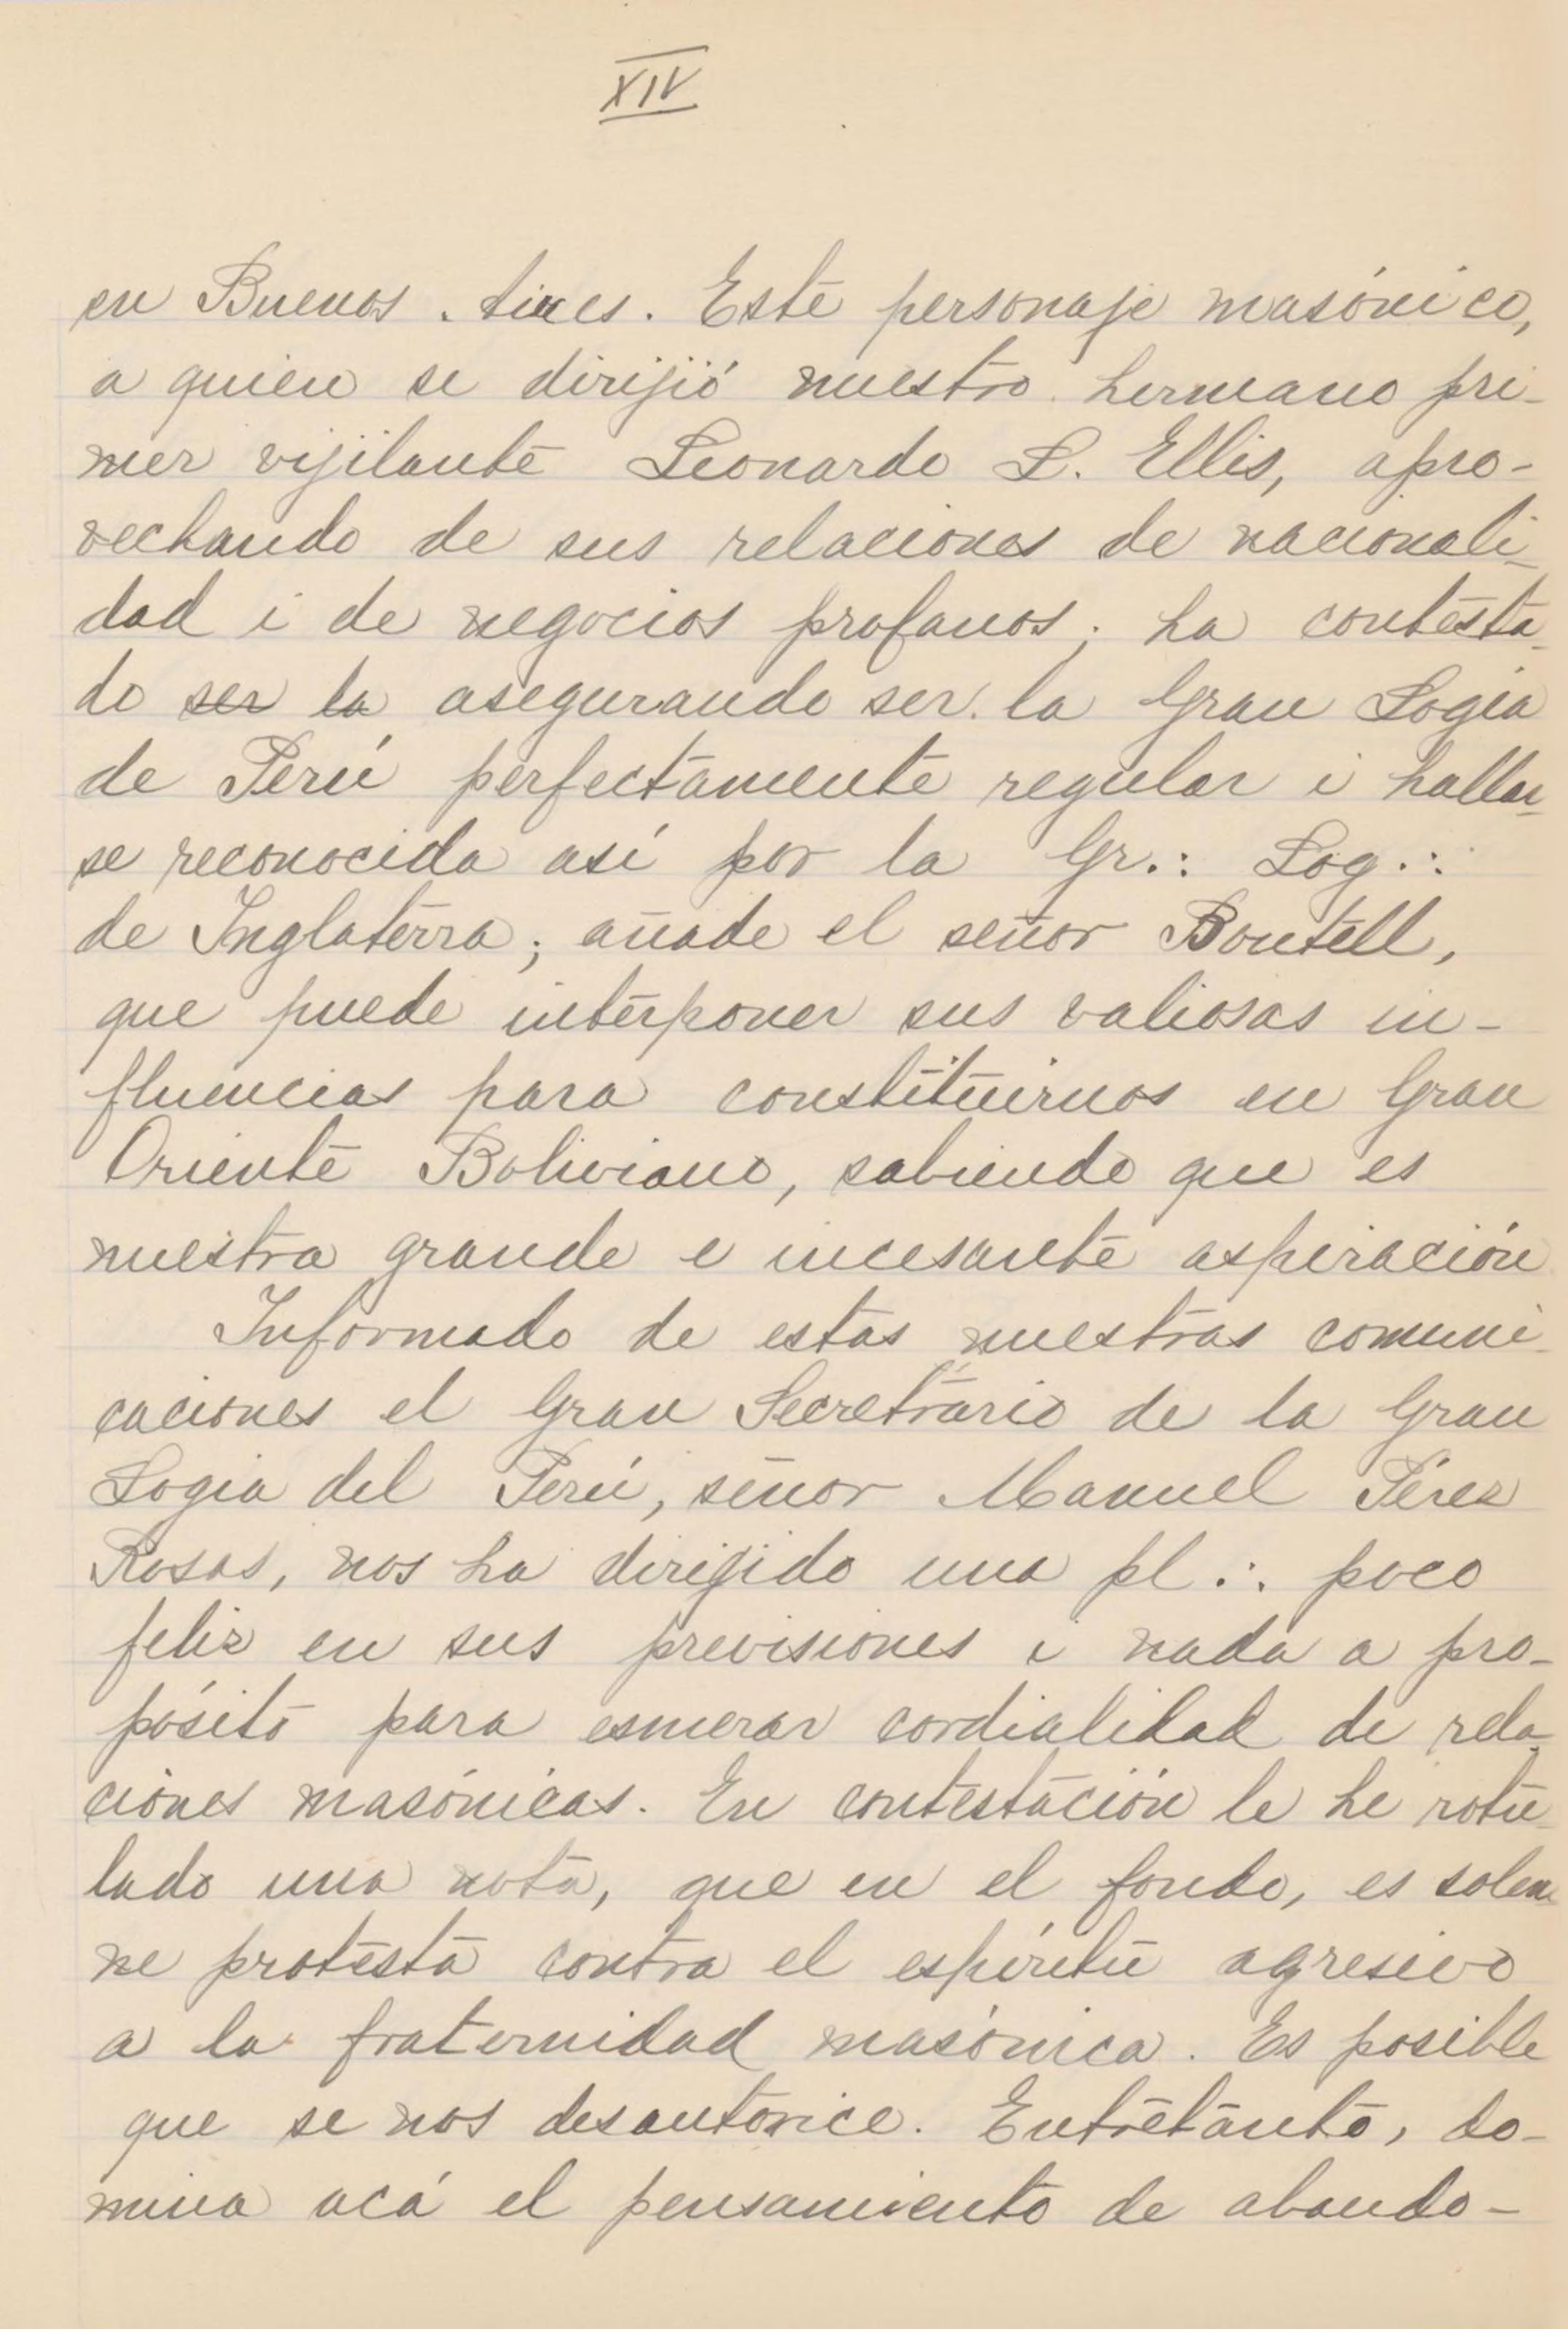 XIV
en Buenos Aires. Este personaje masónico,
a quien se dirijió nuestro hermano pri-
mer vijilante Leonardo L. Ellis, apro-
vechando de sus relaciones de nacionali-
dad i de negocios profanos; ha contesta-
do ser la asegurando ser la Gran Logia
de Perú perfectamente regular i hallar-
se reconocida así por la Gr.: Log.:
de Inglaterra; añade el señor Boutell,
que puede interponer sus valiosas in-
fluencias para constituirnos en Gran
Oriente Boliviano, sabiendo que es
nuestra grande e incesante aspiración
Informado de estas nuestras comuni-
caciones el Gran Secretario de la Gran
Logia del Perú, señor Manuel Pérez
Rosas, nos ha dirigido una pl.: poco
feliz en sus previsiones i nada a pro-
pósito para esmerar cordialidad de rela-
ciones masónicas. En contestación le he rotu-
lado una nota, que en el fondo, es solem-
ne protesta contra el espíritu agresivo
a la fraternidad masónica. Es posible
que se nos desautorice. Entretanto, do-
mina acá el pensamiento de abando-